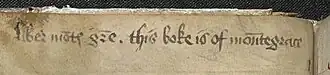 liber mōtꝭ grē. this boke is of montegrace